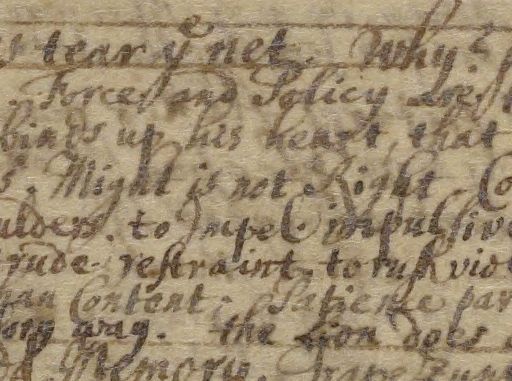 tear yᵉ net. Why?
Force and Policy are
binds up his heart, that
Might is not Right. Co
ulders. to Impel. impulsive
rude. restraint. to rush viol
Content. Patience par
way. the Lion does
Memory.